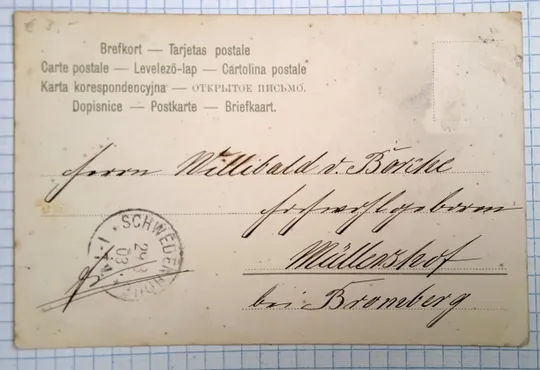 € 3,-
Brefkort — Tarjetas postale
Carte postale — Levelező-lap — Cartolina postale
Karta korespondencyjna — ОТКРЫТОЕ ПИСЬМО.
Dopisnice — Postkarte — Briefkaart.
Herrn Willibald v. Borcke
Hochwohlgeboren
Müllershof
bei Bromberg
SCHWEDENHÖHE